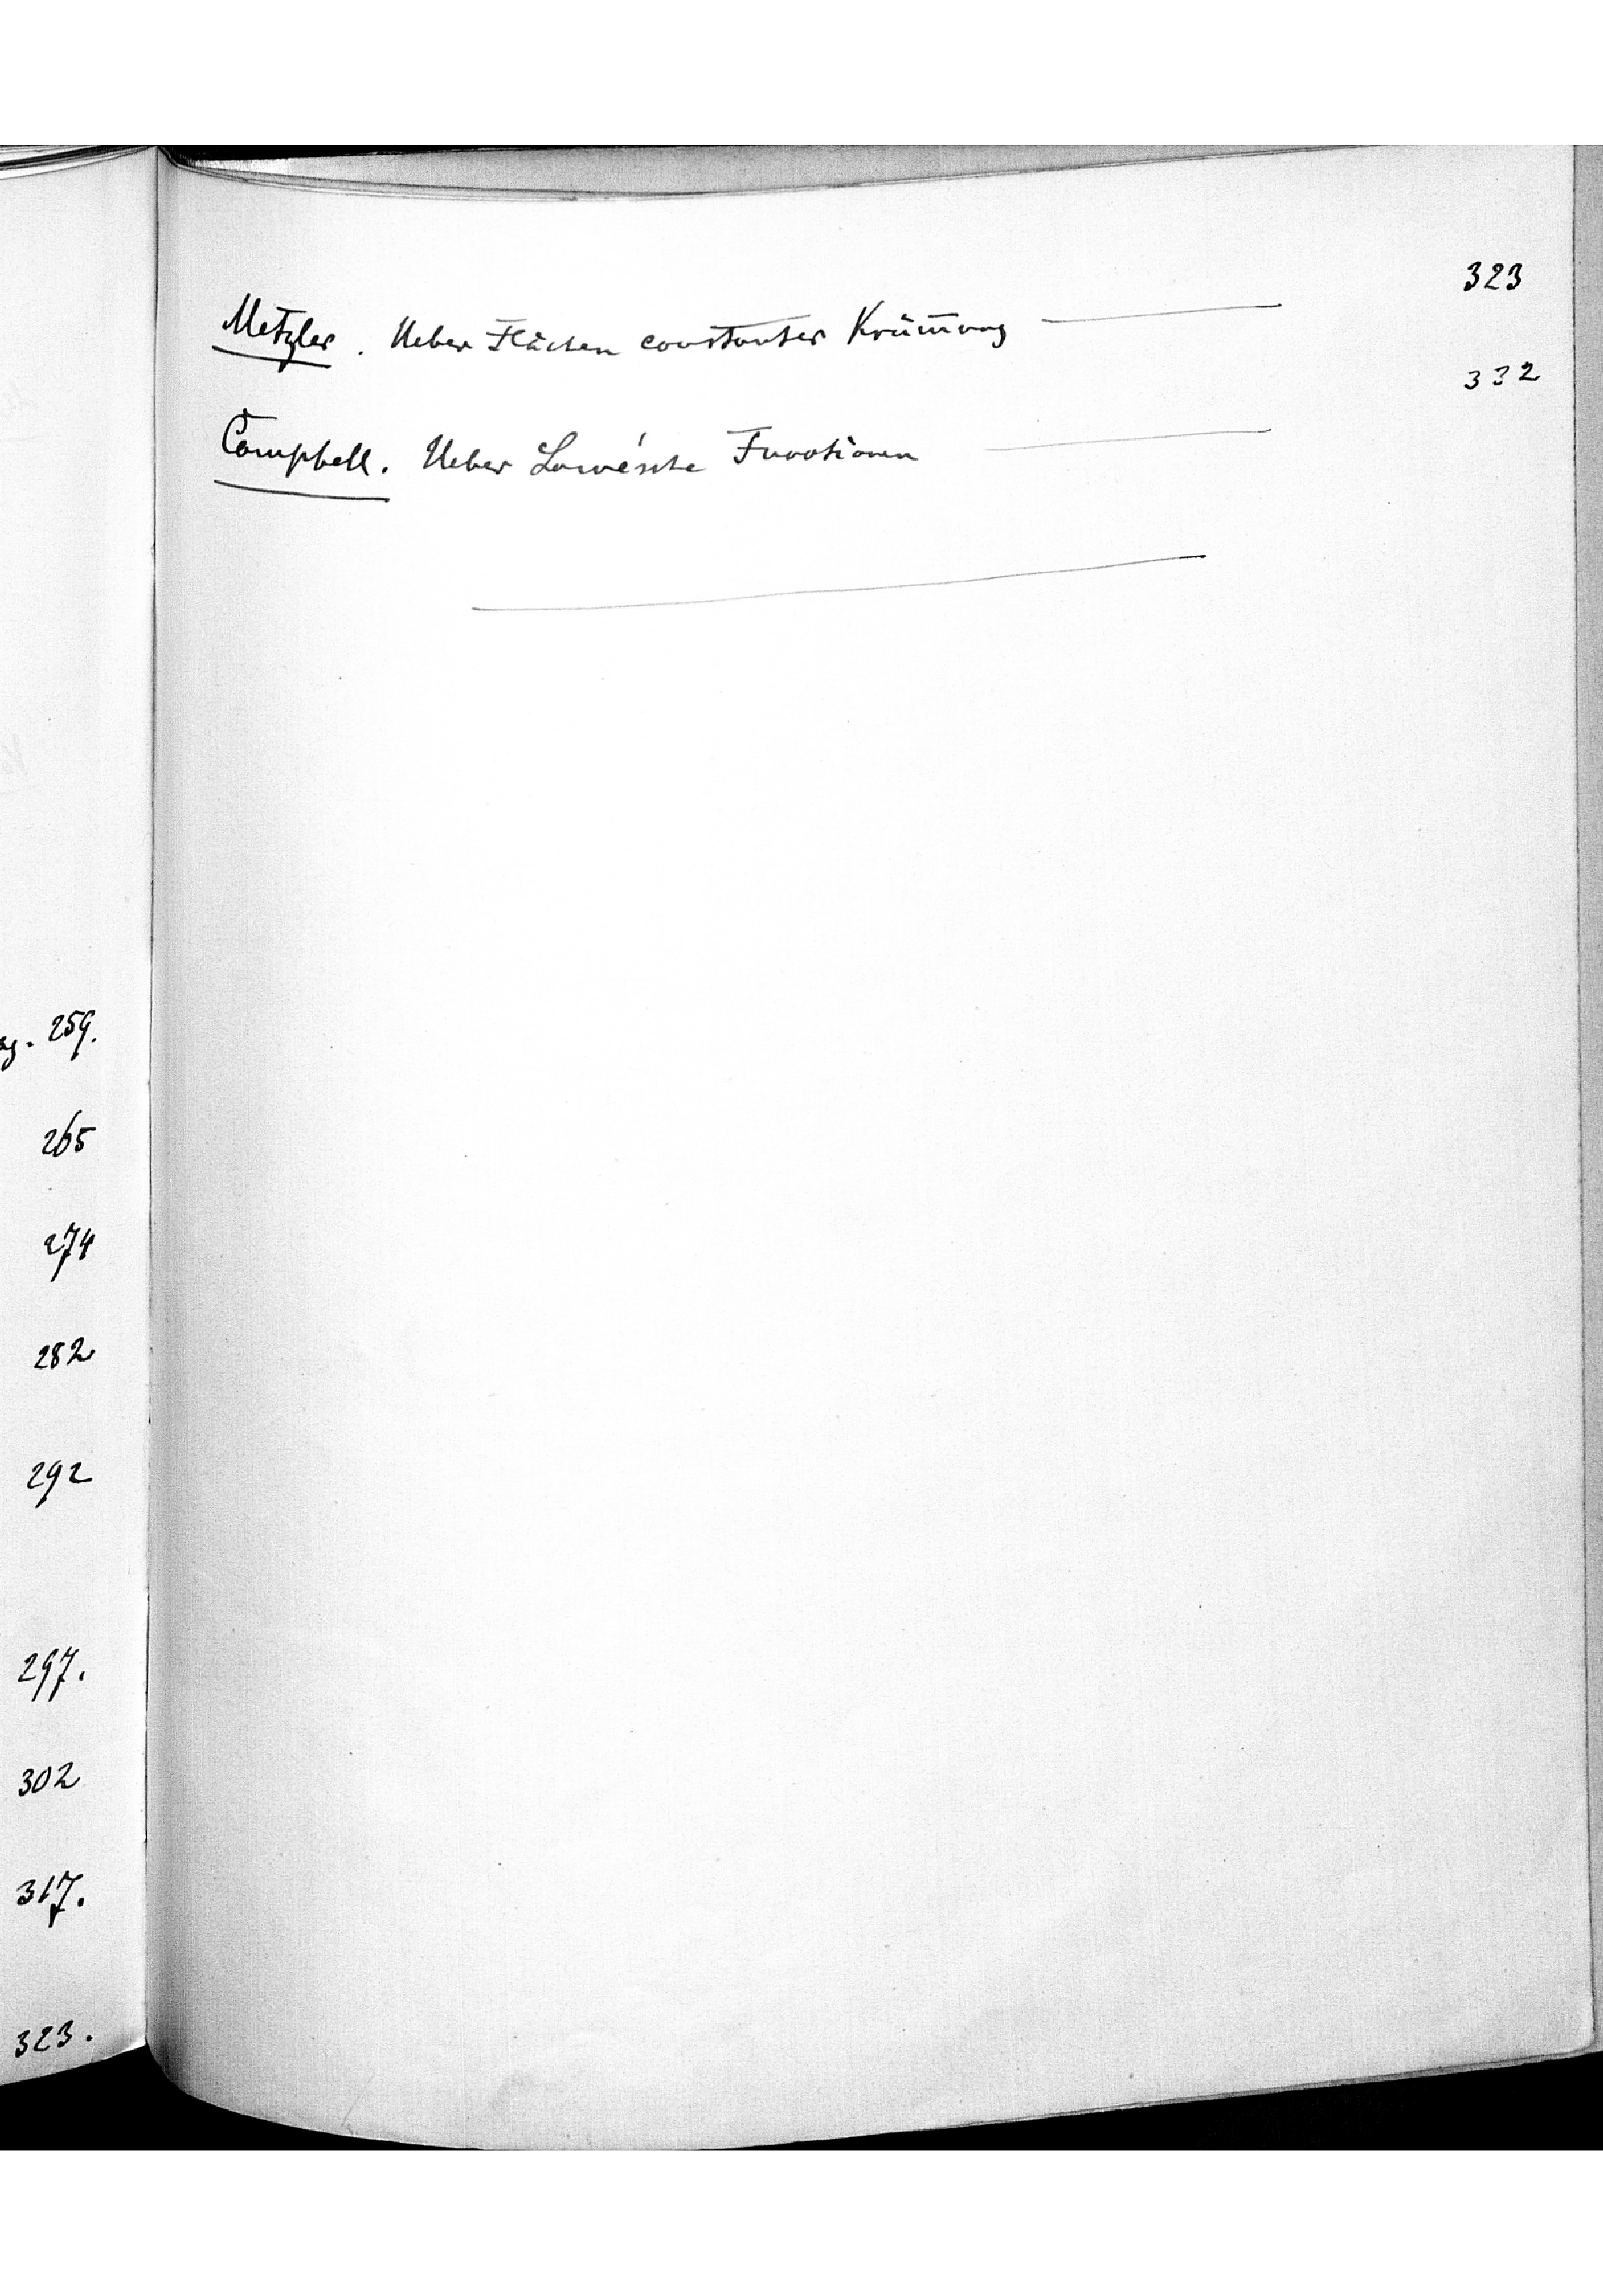 Metzler. Ueber Flächen constanter Krüm̅ung 323
Campbell. Ueber Lamé'sche Functionen 332
pag. 259.
265
274
282
292
297.
302
317.
323.